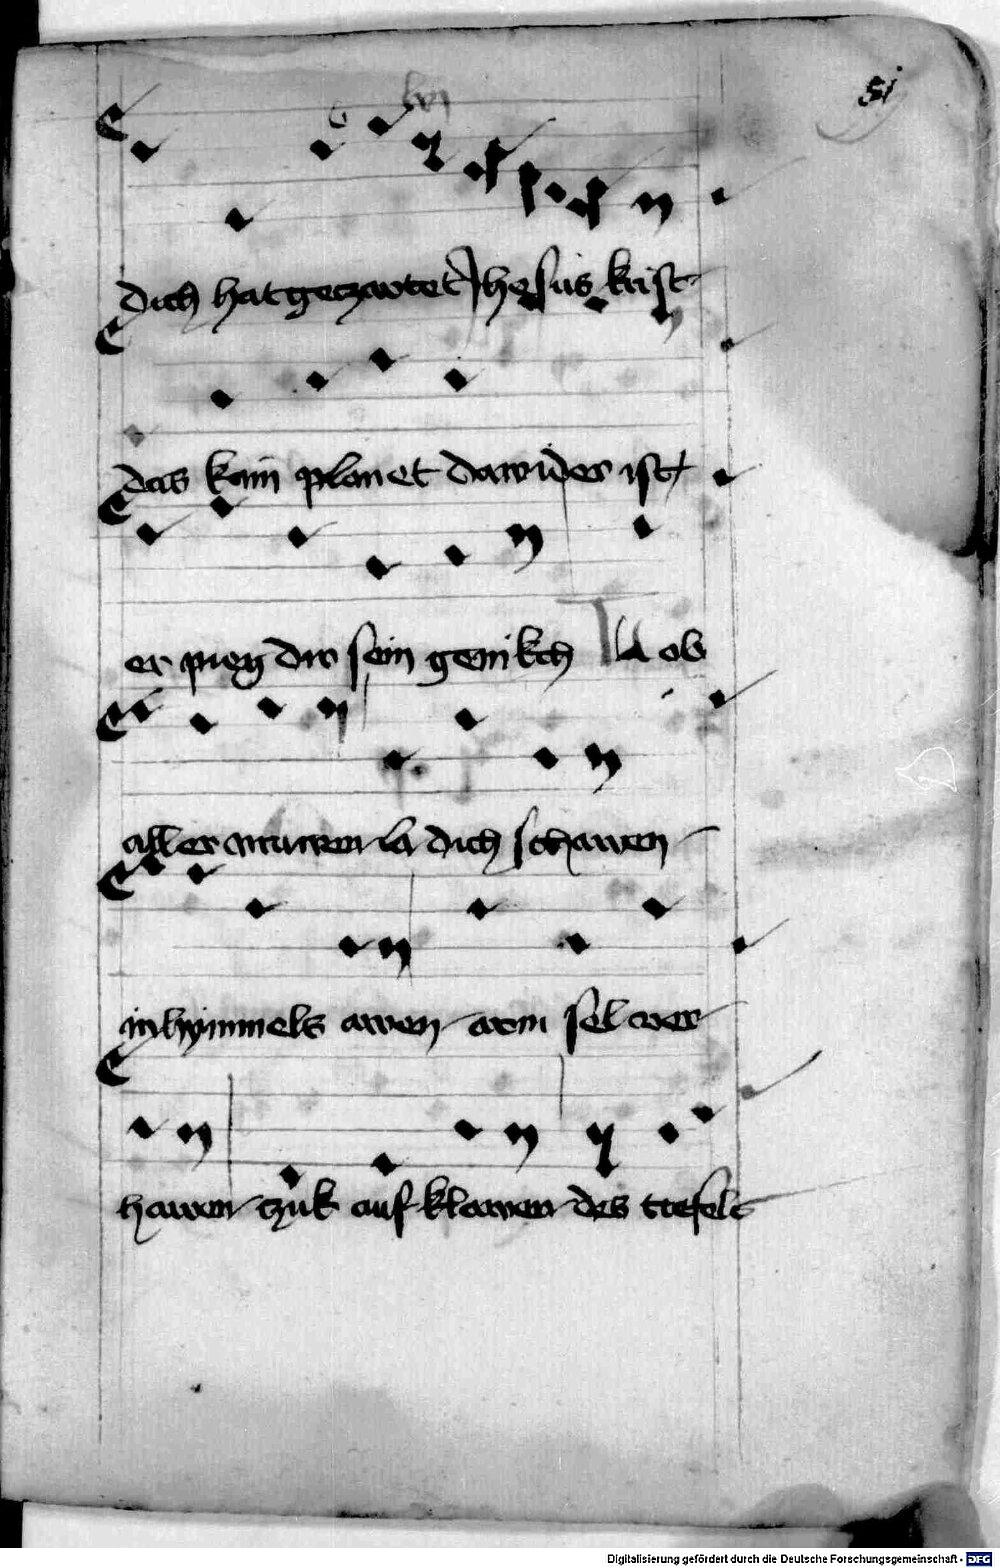 51
lvi
dich hat geczartet Jhesus krist
das kain planet dawider ist
er pieg dir sein genikch Ll ob
aller vrawen la dich schawen
in hymmels awen arm sel ver
hawen czuk auf klawen des tiefels
Digitalisierung gefördert durch die Deutsche Forschungsgemeinschaft - DFG